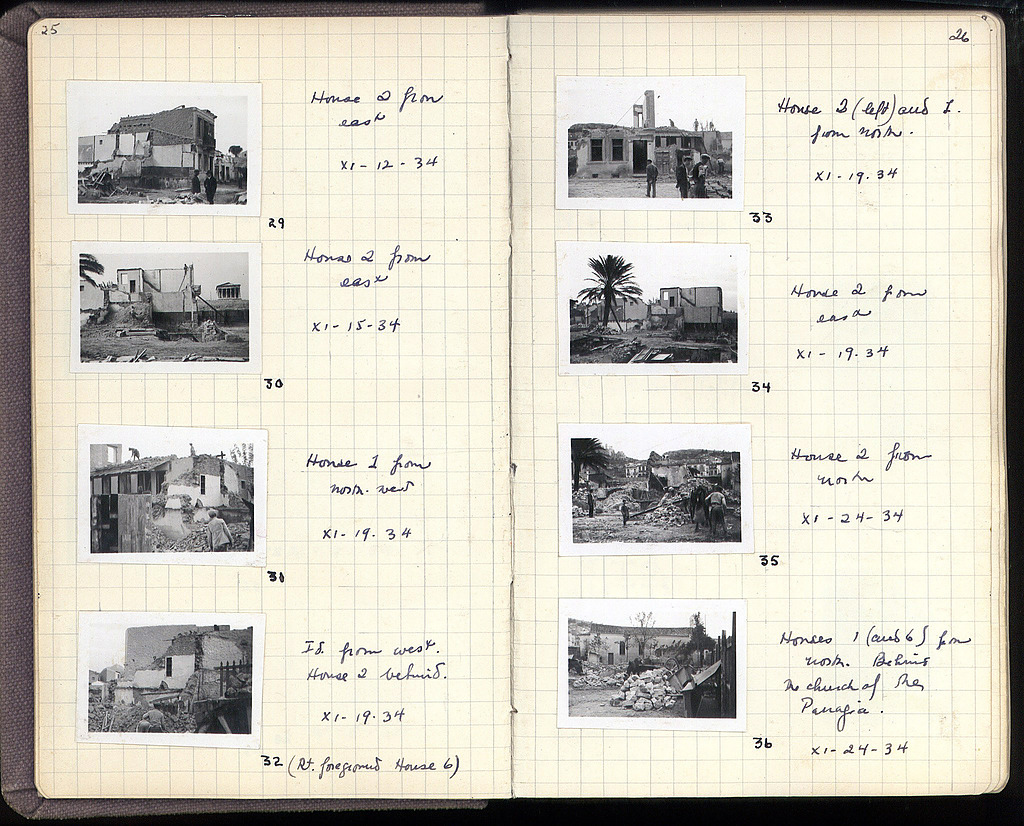 25
House 2 from
east
XI - 12 - 34
29
House 2 from
east
XI - 15 - 34
30
House 1 from
north-west
XI - 19. 34
31
Id. from west.
House 2 behind.
XI - 19. 34
32 (Rt. foreground House 6)
26
House 2 (left) and 1.
from north.
XI - 19. 34
33
House 2 from
east
XI - 19. 34
34
House 2 from
north
XI - 24 - 34
35
Houses 1 (and 6) from
north. Behind
the church of the
Panagia.
XI - 24 - 34
36